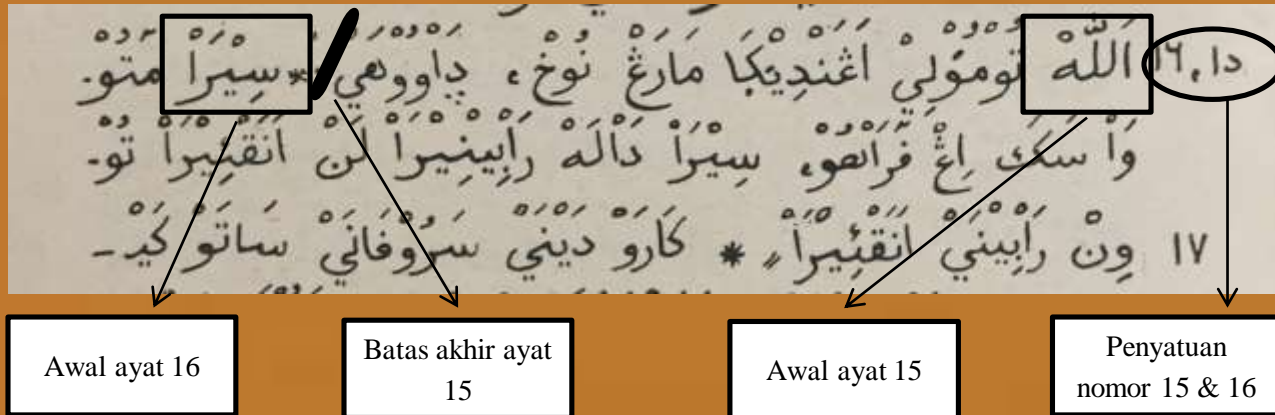 ١٥،١٦ اَللّٰهْ تُومُوْلِيْ اَڠَنْدِيْكَا مَارَڠْ نُوْح، دَاوُوْهَيْ * سِيْرَا مَتَوْ-
وَا سَكَ اِڠْ فَرَاهو، سِيْرَا دَالَهْ رَابِيْنِيْرَا لَنْ اَنَقْئِيْرَا تُوْ-
١٧ وِنْ رَابِيْنَيْ اَنَقْئِيْرَا * كَارَوْ دَيْنَيْ سَرُوْفَانَيْ سَاتَوْ كَيْد-
Awal ayat 16
Batas akhir ayat
15
Awal ayat 15
Penyatuan
nomor 15 & 16